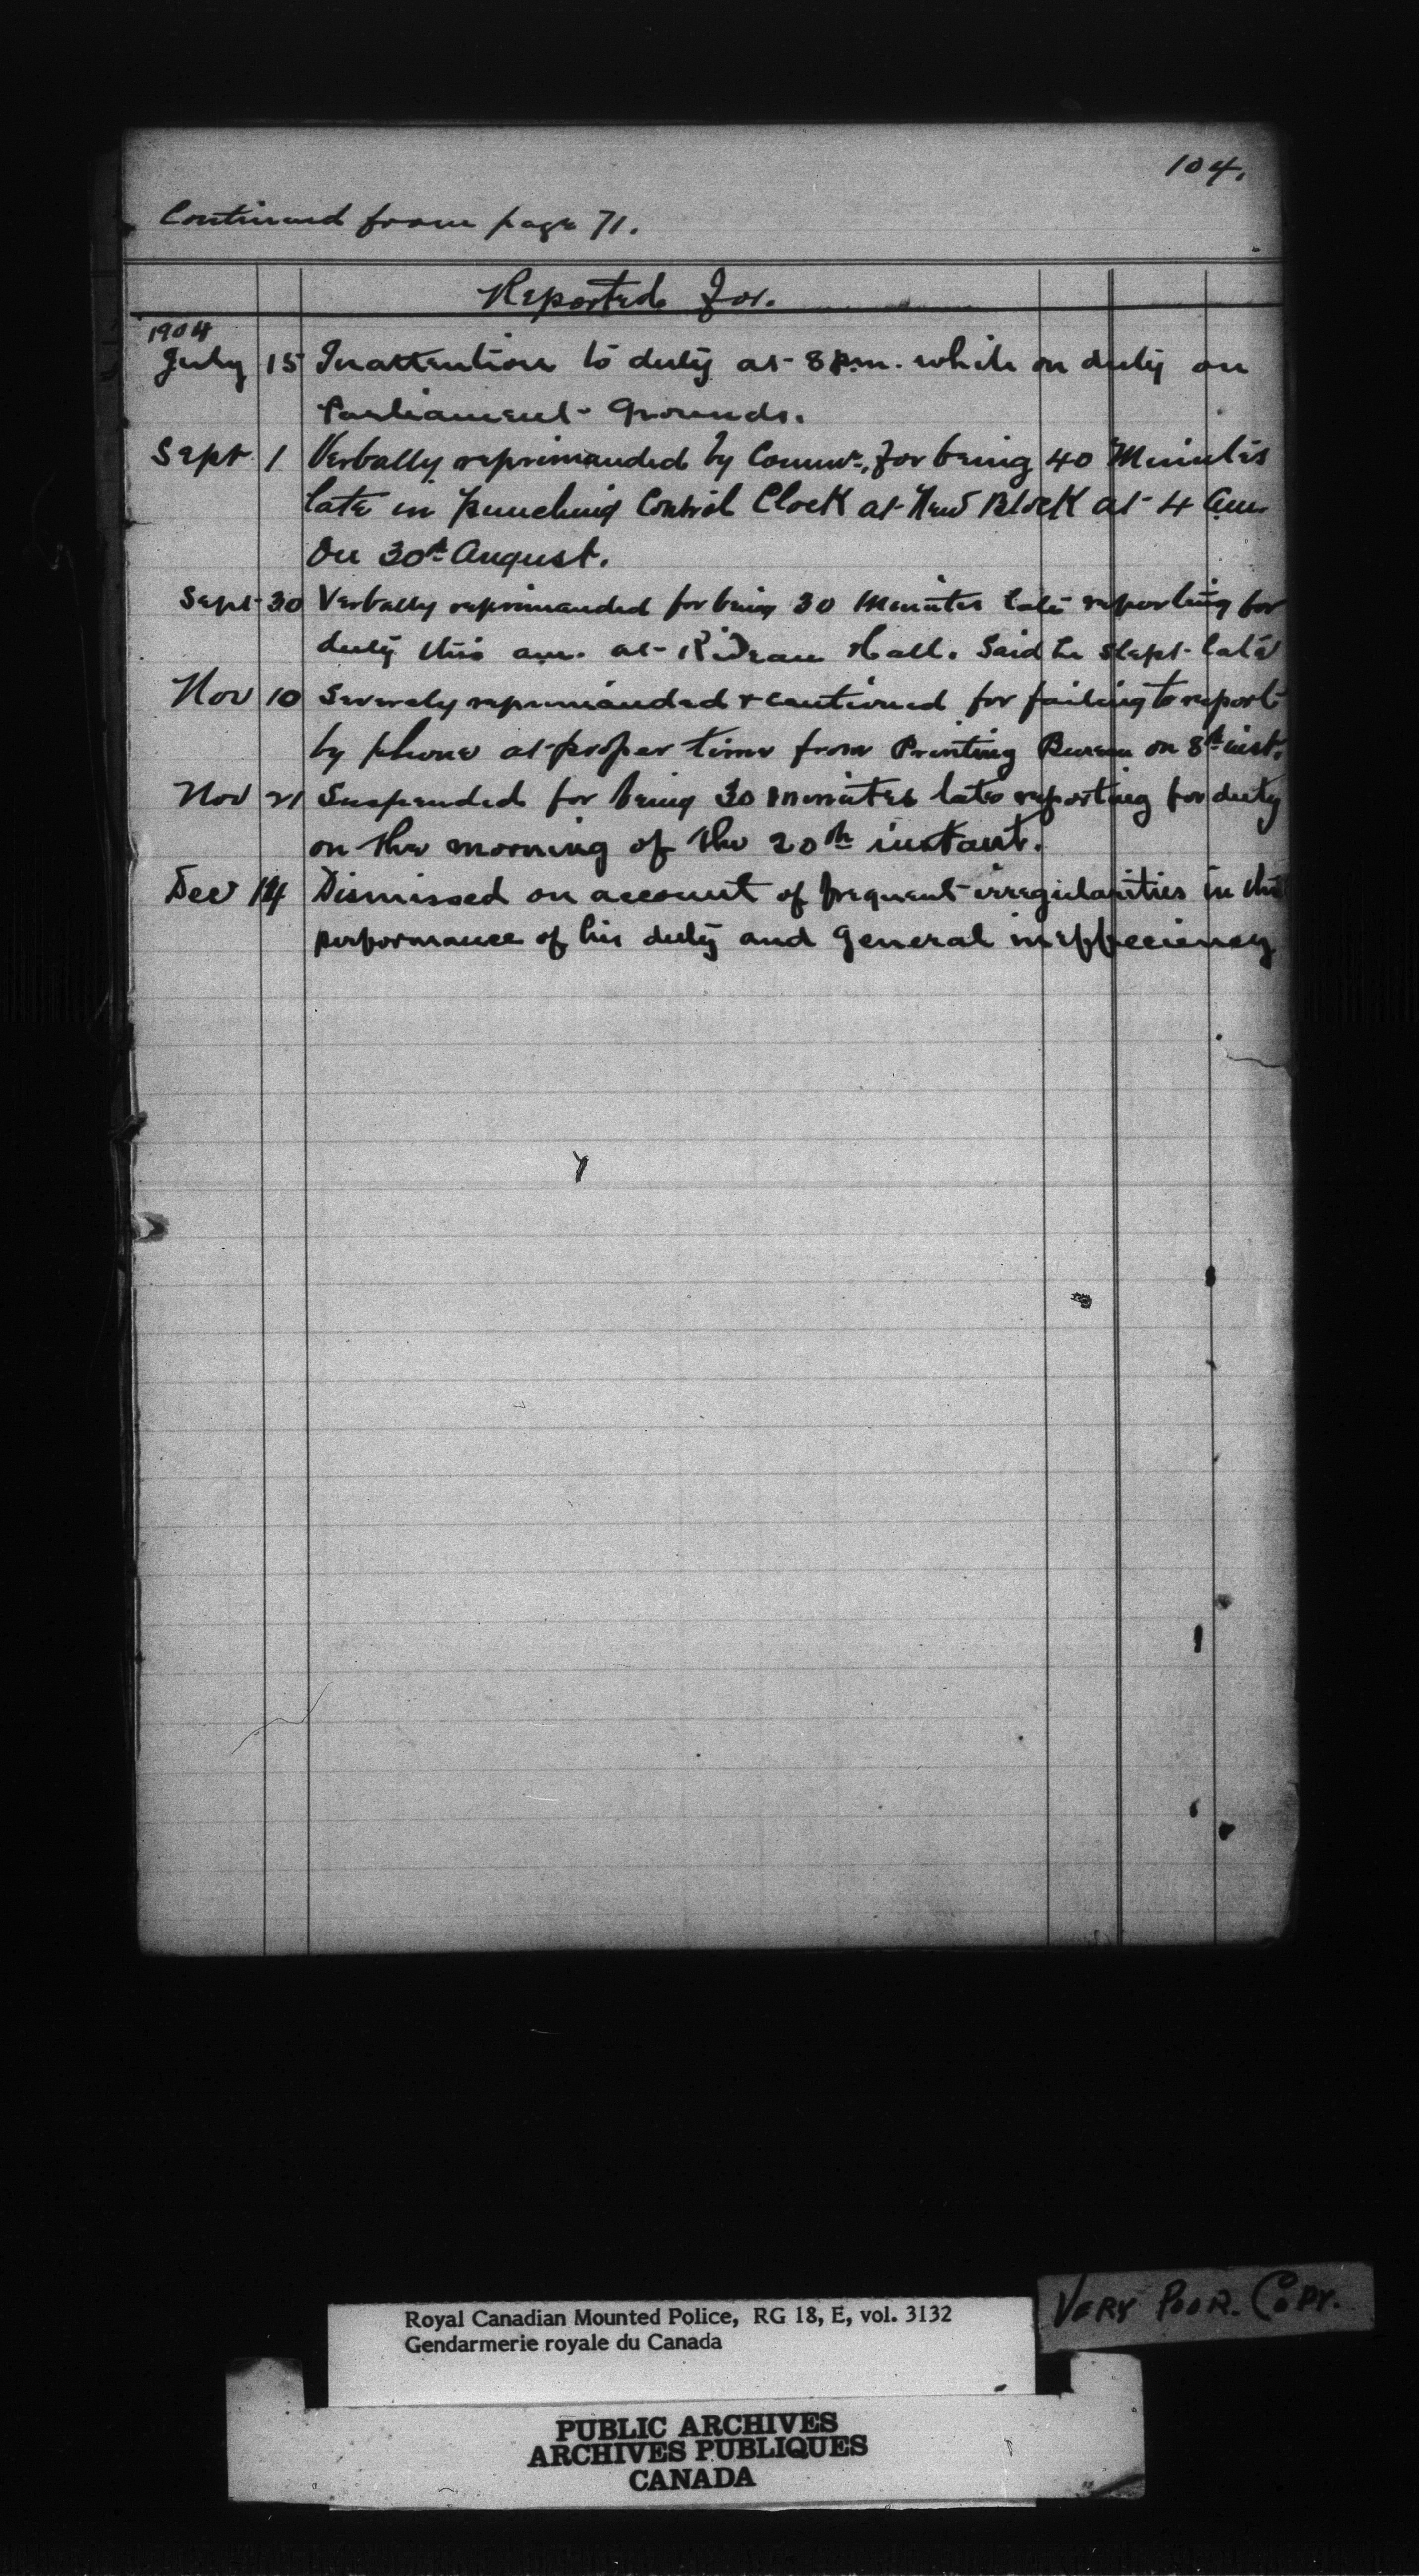 104.
Continued from page 71.
Reported for.
1904
July 15 Inattention to duty at 8 p.m. while on duty on
Parliament Grounds.
Sept 1 Verbally reprimanded by Commr., for being 40 Minutes
late in punching Control Clock at New Block at 4 am.
On 30th August.
Sept 30 Verbally reprimanded for being 30 Minutes late reporting for
duty this am. at Rideau Hall. Said he slept late
Nov 10 Severely reprimanded & cautioned for failing to report
by phone at proper time from Printing Bureau on 8th inst.
Nov 21 Suspended for being 30 minutes late reporting for duty
on the morning of the 20th instant.
Dec 14 Dismissed on account of frequent irregularities in the
performance of his duty and General inefficiency
VERY POOR. COPY.
Royal Canadian Mounted Police, RG 18, E, vol. 3132
Gendarmerie royale du Canada
PUBLIC ARCHIVES
ARCHIVES PUBLIQUES
CANADA